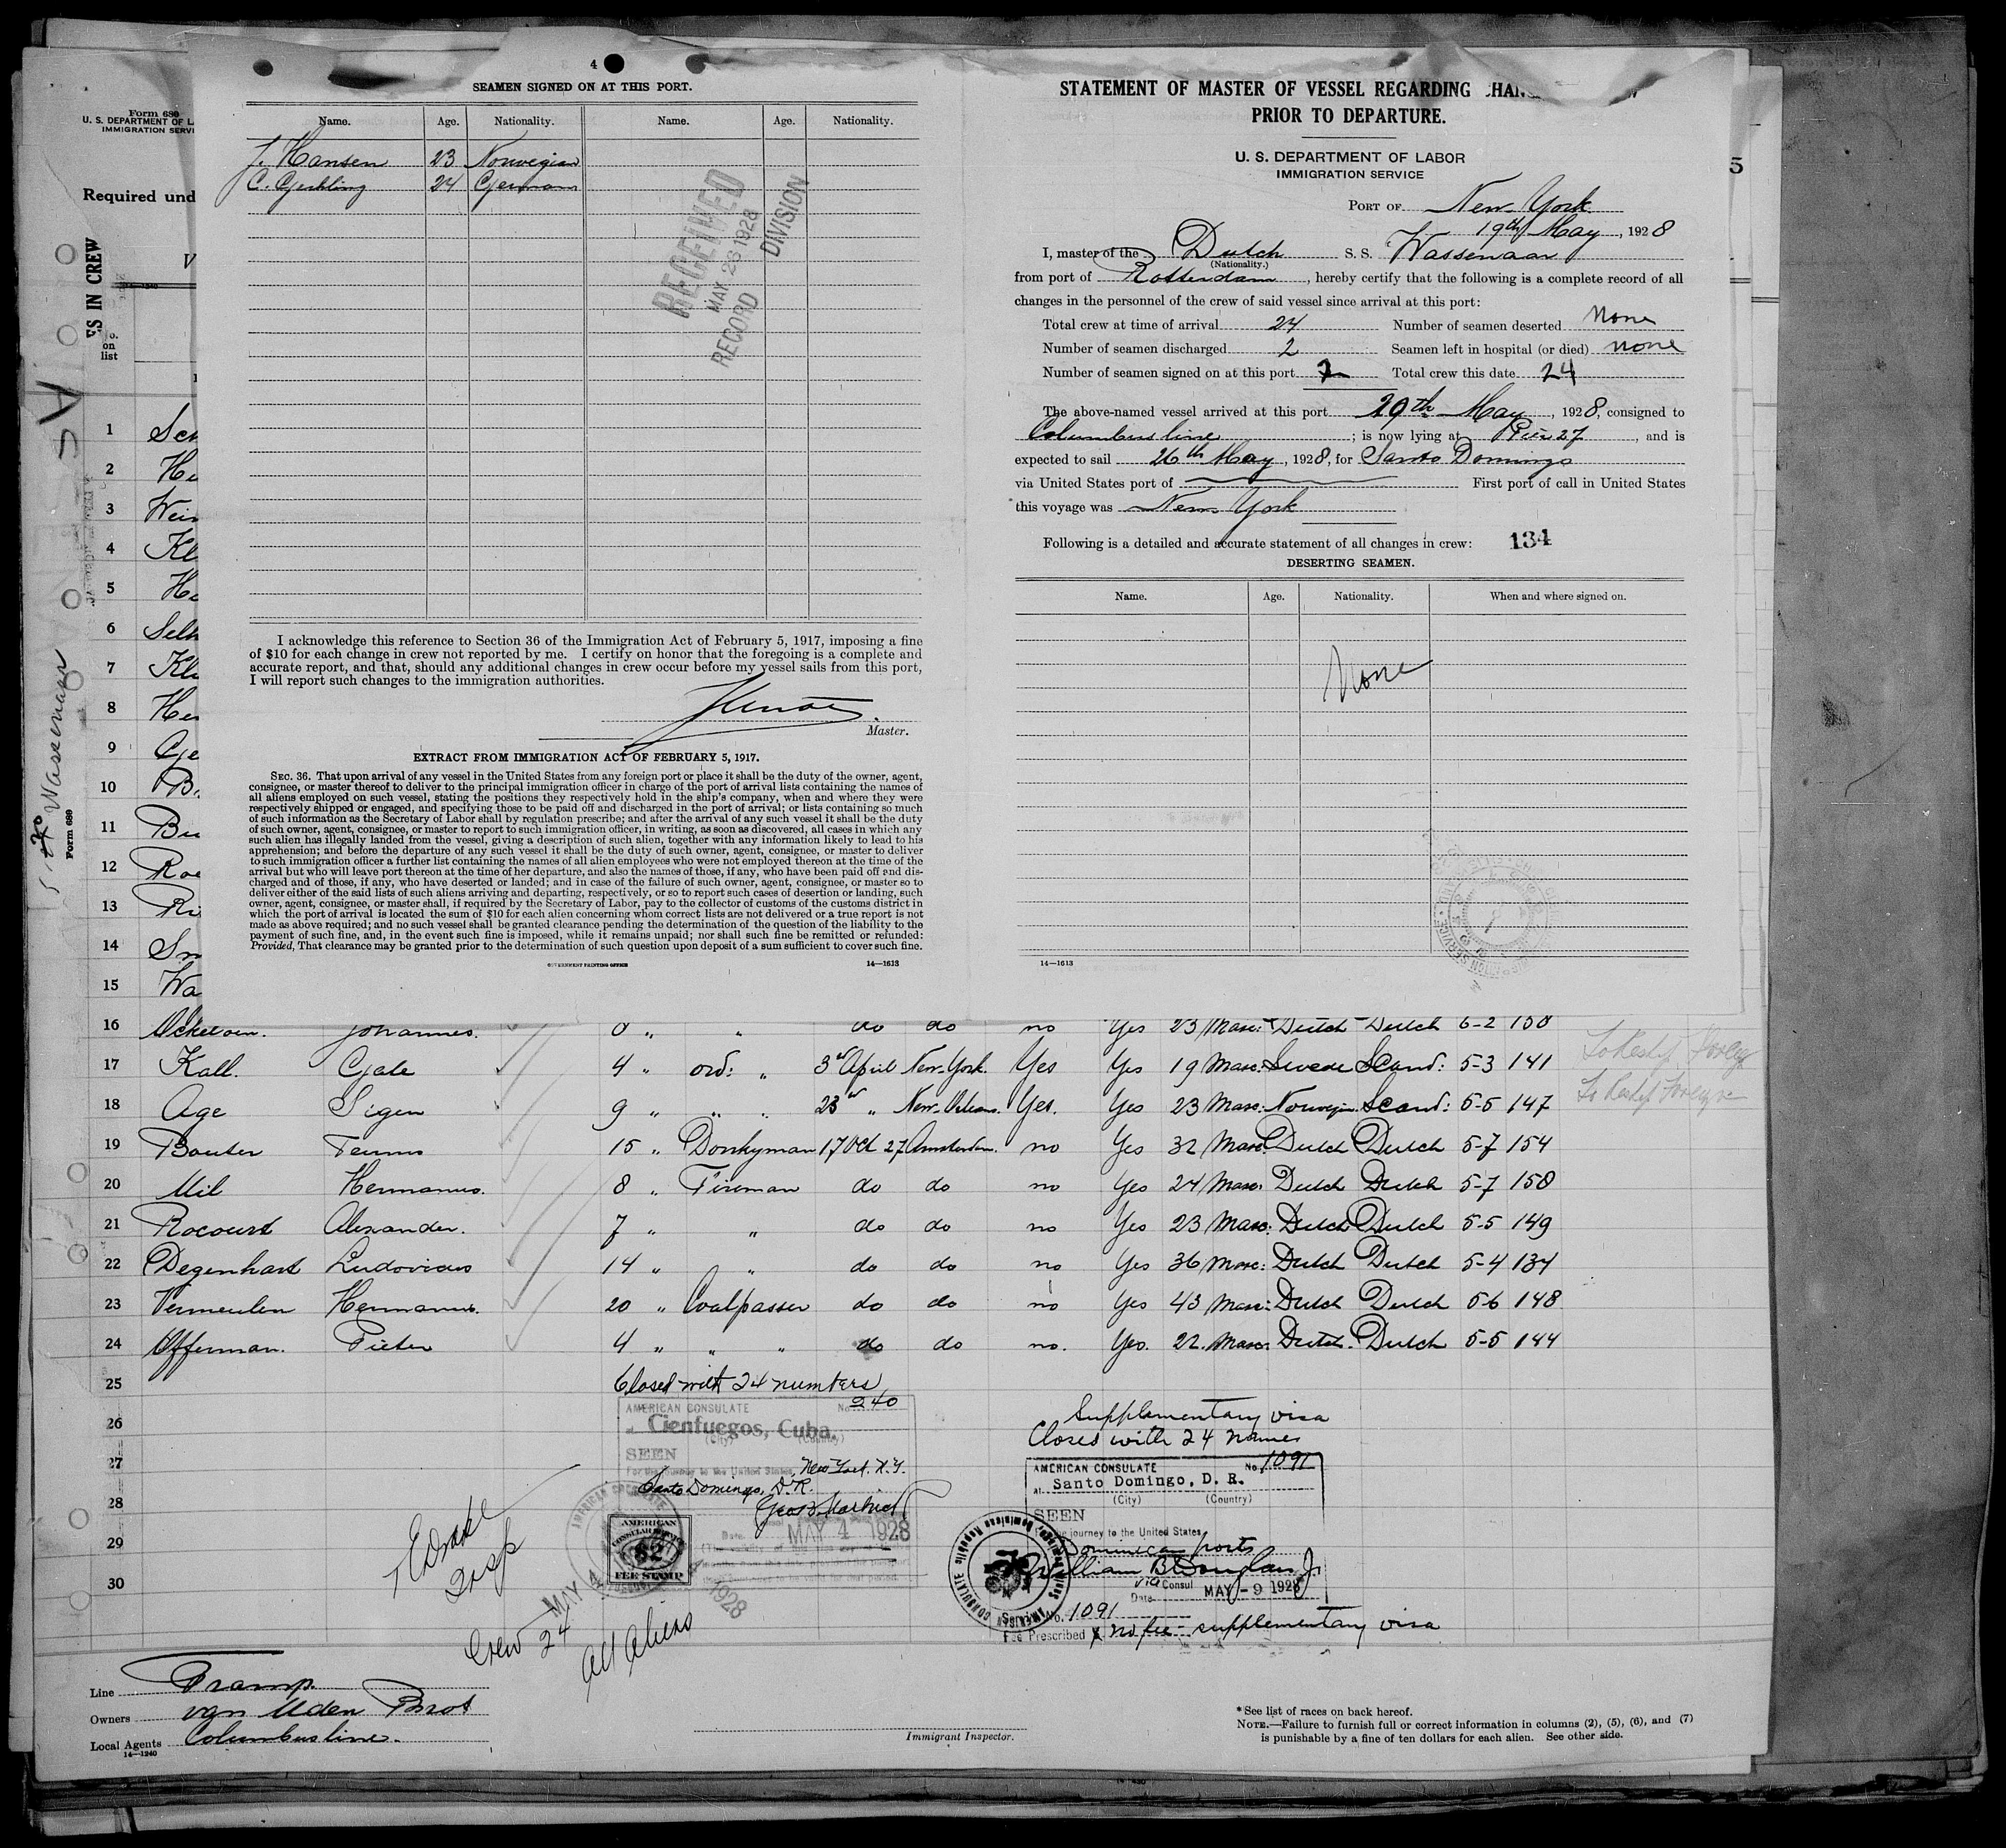 4
SEAMEN SIGNED ON AT THIS PORT.
Name. Age. Nationality. Name. Age. Nationality.
J. Hansen 23 Norwegian
C. 24 German
RECEIVED
MAY 23 1928
RECORD DIVISION
I acknowledge this reference to Section 36 of the Immigration Act of February 5, 1917, imposing a fine
of $10 for each change in crew not reported by me. I certify on honor that the foregoing is a complete and
accurate report, and that, should any additional changes in crew occur before my vessel sails from this port,
I will report such changes to the immigration authorities.
Master.
EXTRACT FROM IMMIGRATION ACT OF FEBRUARY 5, 1917.
SEC. 36. That upon arrival of any vessel in the United States from any foreign port or place it shall be the duty of the owner, agent,
consignee, or master thereof to deliver to the principal immigration officer in charge of the port of arrival lists containing the names of
all aliens employed on such vessel, stating the positions they respectively hold in the ship's company, when and where they were
respectively shipped or engaged, and specifying those to be paid off and discharged in the port of arrival; or lists containing so much
of such information as the Secretary of Labor shall by regulation prescribe; and after the arrival of any such vessel it shall be the duty
of such owner, agent, consignee, or master to report to such immigration officer, in writing, as soon as discovered, all cases in which any
such alien has illegally landed from the vessel, giving a description of such alien, together with any information likely to lead to his
apprehension; and before the departure of any such vessel it shall be the duty of such owner, agent, consignee, or master to deliver
to such immigration officer a further list containing the names of all alien employees who were not employed thereon at the time of the
arrival but who will leave port thereon at the time of her departure, and also the names of those, if any, who have been paid off and dis-
charged and of those, if any, who have deserted or landed; and in case of the failure of such owner, agent, consignee, or master so to
deliver either of the said lists of such aliens arriving and departing, respectively, or so to report such cases of desertion or landing, such
owner, agent, consignee, or master shall, if required by the Secretary of Labor, pay to the collector of customs of the customs district in
which the port of arrival is located the sum of $10 for each alien concerning whom correct lists are not delivered or a true report is not
made as above required; and no such vessel shall be granted clearance pending the determination of the question of the liability to the
payment of such fine, and, in the event such fine is imposed, while it remains unpaid; nor shall such fine be remitted or refunded:
Provided, That clearance may be granted prior to the determination of such question upon deposit of a sum sufficient to cover such fine.
GOVERNMENT PRINTING OFFICE 14—1613
STATEMENT OF MASTER OF VESSEL REGARDING
PRIOR TO DEPARTURE.
U. S. DEPARTMENT OF LABOR
IMMIGRATION SERVICE
PORT OF New York
19th May, 1928
I, master of the Dutch S. S. Wassenaar
(Nationality.)
from port of Rotterdam, hereby certify that the following is a complete record of all
changes in the personnel of the crew of said vessel since arrival at this port:
Total crew at time of arrival 24 Number of seamen deserted None
Number of seamen discharged 2 Seamen left in hospital (or died) none
Number of seamen signed on at this port 2 Total crew this date 24
The above-named vessel arrived at this port 19th May, 1928, consigned to
Columbus line; is now lying at Pier 27, and is
expected to sail 26th May, 1928, for Santo Domingo
via United States port of First port of call in United States
this voyage was New York
Following is a detailed and accurate statement of all changes in crew: 134
DESERTING SEAMEN.
Name. Age. Nationality. When and where signed on.
None
14—1613
Form 680
U. S. DEPARTMENT OF L
IMMIGRATION SERVI
Required und
ES IN CREW
V
5
on
list
1 Sch
2 He
3 Wei
4 Kl
5 He
6 Selh
7 Kl
8 He
9 Ge
10 B
11 Bu
12 Roe
13 Ri
14 Sm
15 Wa
Wassenaar
Form 680
16 Johannes. do do no Yes 23 Masc: Dutch Dutch 6-2 158
17 Kall. Gale 4 " ord: " 3d April New-York. Yes Yes 19 Masc: Swede Scand: 5-3 141
18 Age Sigen 9 " " " 23d " New-Orleans. Yes. Yes 23 Masc: Norwegin Scand: 5-5 147
19 Bouter Teunis 15 " Donkyman 17 Oct 27 Amsterdam. no Yes 32 Masc. Dutch Dutch 5-7 154
20 Mil Hermanus. 8 " Fireman do do no Yes 24 Masc. Dutch Dutch 5-7 158
21 Rocourt Alexander. 7 " " do do no Yes 23 Masc: Dutch Dutch 5-5 149
22 Degenhart Ludovicus 14 " " do do no Yes 36 Masc: Dutch Dutch 5-4 134
23 Vermeulen Hermanus. 20 " Coalpasser do do no Yes 43 Masc: Dutch Dutch 5-6 148
24 Offerman. Pieter 4 " " " do do no. Yes. 22. Masc: Dutch. Dutch 5-5 144
25
26
27
28
29
30
Closed with 24 numbers
AMERICAN CONSULATE No. 240
at Cienfuegos, Cuba.
(City) (Country)
SEEN
For the journey to the United States New York. N.Y.
Santo Domingo, D.R.
Date MAY 4 1928
AMERICAN
CONSULAR SERVICE
$2
FEE STAMP
MAY 4 1928
Crew 24
all aliens
Supplementary visa
Closed with 24 names
AMERICAN CONSULATE No. 1091
at Santo Domingo, D. R.
(City) (Country)
SEEN
journey to the United States
Dominican ports
William B Douglas Jr
Vice Consul
Date MAY - 9 1928
No. 1091
Fee Prescribed no fee - supplementary visa
Line Tramp.
Owners van Uden Bros
Local Agents Columbus line.
14—1240
Immigrant Inspector.
* See list of races on back hereof.
NOTE.—Failure to furnish full or correct information in columns (2), (5), (6), and (7)
is punishable by a fine of ten dollars for each alien. See other side.